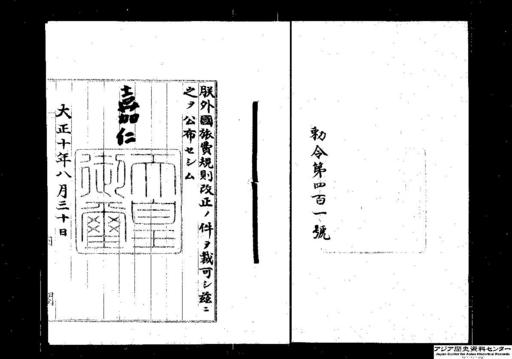 勅令第四百一號
朕外國旅費規則改正ノ件ヲ裁可シ茲ニ
之ヲ公布セシム
嘉仁
天皇
御璽
大正十年八月三十日
アジア歴史資料センター
Japan Center for Asian Historical Records